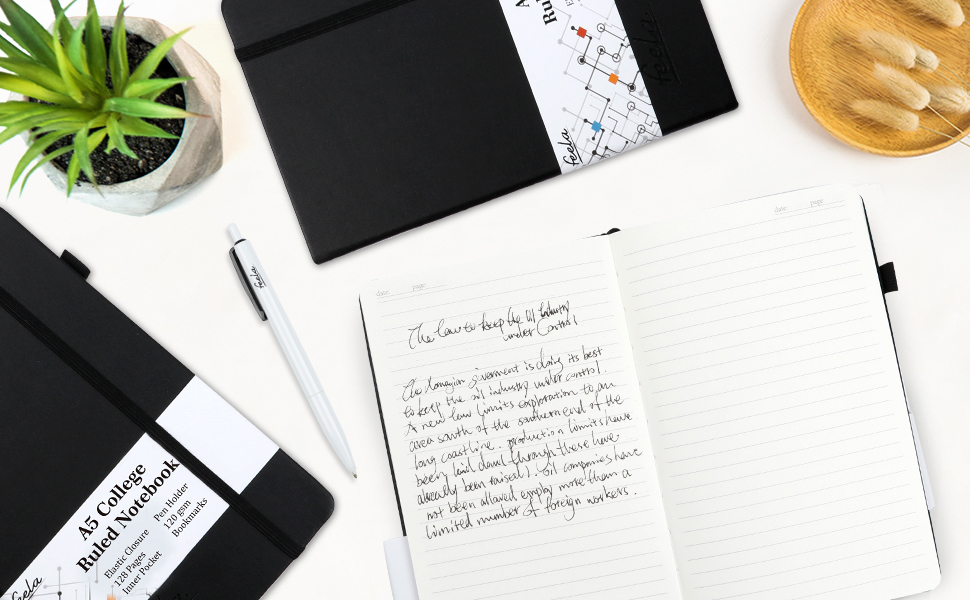 A
Ru
feela
feela.
feela
date
page
date
page
The law to keep the oil industry
under Control
The Norwegian goverment is doing its best
to keep the oil industry under control.
A new law limits exploration to an
area south of the southern end of the
long coastline. production limits have
being laid down (through these have
already been raised). oil companies have
not been allowed employ more than a
limited number of foreign workers.
A5 College
Ruled Notebook
Elastic Closure
128 Pages
Inner Pocket
Pen Holder
120 gsm
Bookmarks
feela